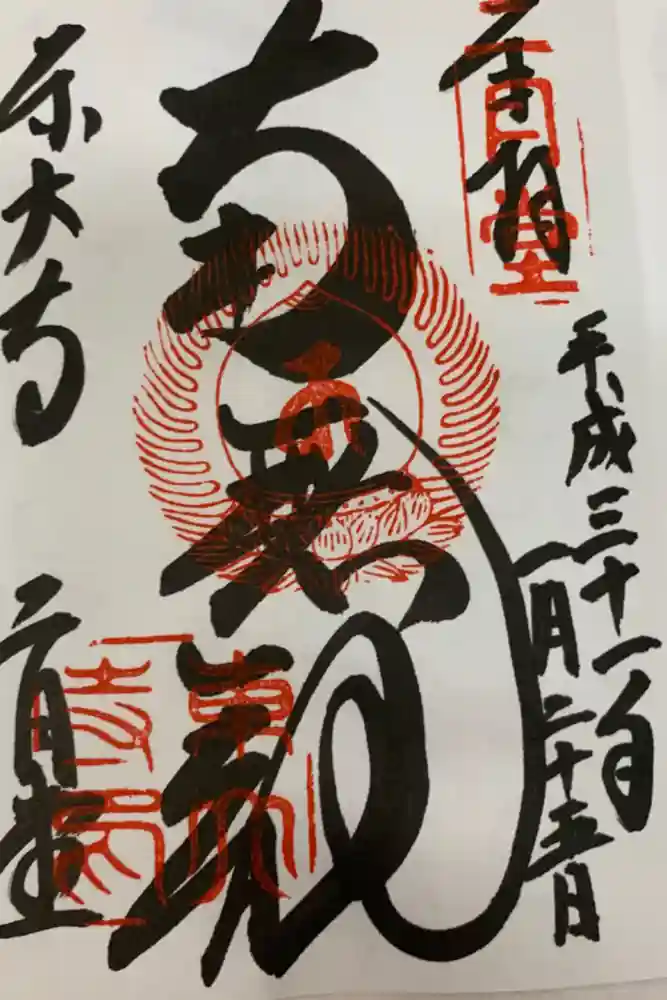 奉拝
二月堂
平成三十一年
一月二十五日
南無観
東大寺 二月堂
東大
寺印